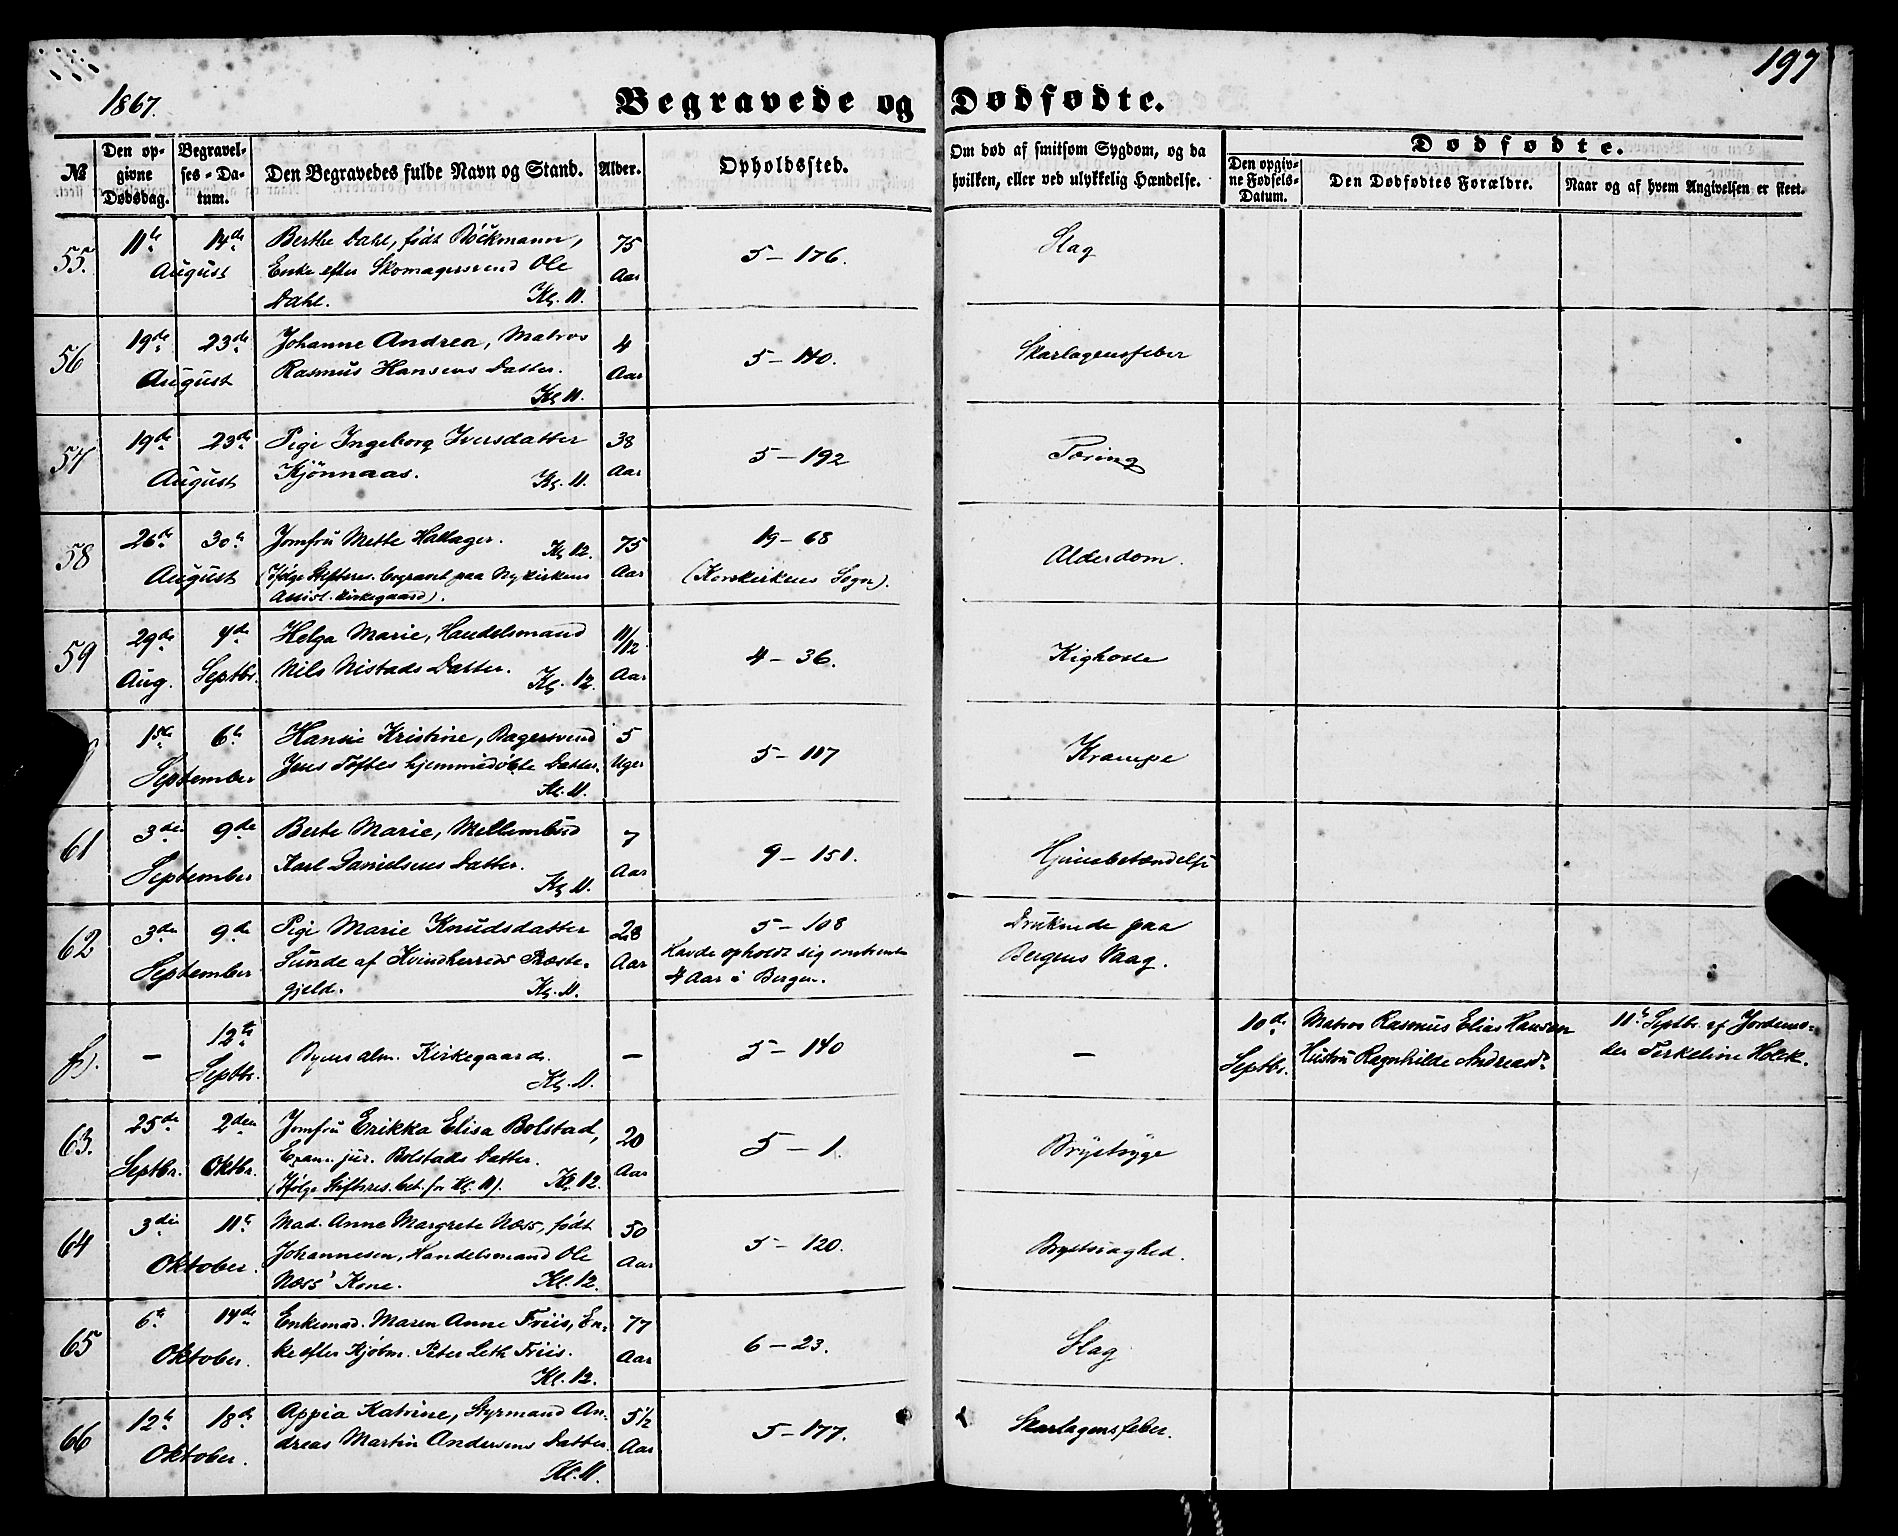 197
1867.
Begravede og Dødfødte.
№
Den op-
givne
Dødsdag.
Begravel-
ses-Da-
tum.
Den Begravedes fulde Navn og Stand.
Alder.
Opholdssted.
Om død af smitsom Sygdom, og da
hvilken, eller ved ulykkelig Hændelse.
Dødfødte.
Den opgiv-
ne Fødsels-
Datum.
Den Dødfødtes Forældre.
Naar og af hvem Angivelsen er skeet.
55.
11te 14de
August
Berthe Dahl, født Böckmann,
Enke efter Skomagersvend Ole
Dahl. Kl. 11.
75
Aar
5 - 176.
Slag
56
19de 23de
August
Johanne Andrea, Matros
Rasmus Hansens Datter.
Kl. 11.
4
Aar
5 - 140.
Skarlagensfeber
57
19de 23de
August
Pige Ingeborg Iversdatter
Kjönnaas. Kl. 11.
38
Aar
5 - 192
Tæring
58
26de 30te
August
Jomfru Mette Hallager. Kl. 12.
(Ifølge Stiftsres. begravet paa Nykirkens
Assist. Kirkegaard).
75
Aar
19 - 68
(Korskirkens Sogn).
Alderdom.
59
29de 4de
Aug. Septbr.
Helga Marie, Handelsmand
Nils Nistads Datter. Kl. 12.
11/12
Aar
4 - 36.
Kighoste
1ste 6te
September
Hansie Kristine, Bagersvend
Jens Toftes hjemmedøbte Datter.
Kl. 11.
5
Uger
5 - 117
Krampe
61
3die 9de
September
Berte Marie,
Karl Danielsens Datter.
Kl. 11.
7
Aar
9 - 151.
Hjernebetændelse
62
3die 9de
September
Pige Marie Knudsdatter
Sunde af Kvindherreds Præste-
gjeld. Kl. 11.
28
Aar
5 - 108
Havde opholdt sig omtrent
4 Aar i Bergen.
Druknede paa
Bergens Vaag.
f).
—
12te
Septbr.
Byens alm. Kirkegaard.
Kl. 11.
—
5 - 140
—
10de
Septbr.
Matros Rasmus Elias Hansen
Hustru Ragnhilde Andreasdr.
11te Septbr. af Jordemo-
der Terkeline Holck.
63.
25de 2den
Septbr. Oktbr.
Jomfru Erikka Elisa Bolstad,
Exam. jur. Bolstads Datter.
(Ifølge Stiftsres. bet. for Kl. 11). Kl. 12.
20
Aar
5 - 1.
Brystsyge
64
3die 11te
Oktober.
Mad. Anne Margrete Næss, født
Johannesen, Handelsmand Ole
Næss' Kone. Kl. 12.
50
Aar
5 - 120.
Brystsvaghed.
65
6te 14de
Oktober.
Enkemad. Maren Anne Friis, En-
ke efter Kjøbm. Peter Leth Friis.
Kl. 12.
77
Aar
6 - 23.
Slag
66
12te 18de
Oktober.
Appia Katrine, Styrmand An-
dreas Martin Andersens Datter.
Kl. 11.
5 1/2
Aar
5 - 177.
Skarlagensfeber.